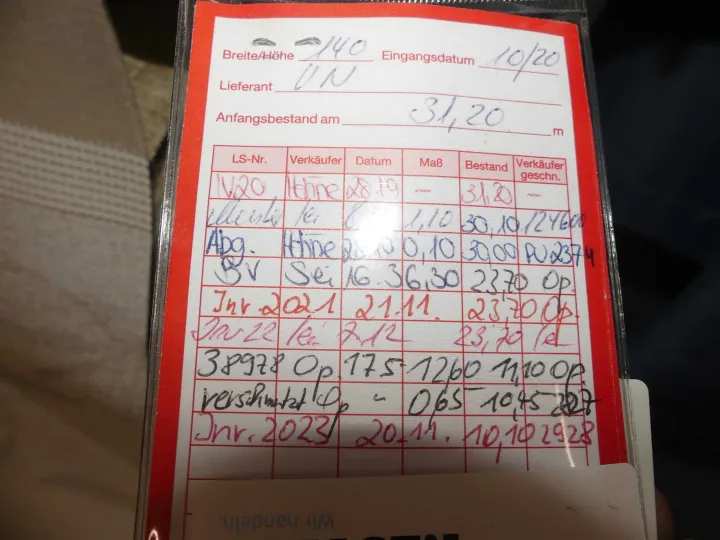 Breite/Höhe 140 Eingangsdatum 10/20
Lieferant VN
Anfangsbestand am 31,20 m
LS-Nr. Verkäufer Datum Maß Bestand Verkäufer geschn.
IV20 Höhne - 31,20 -
1,10 30,10 124600
Abg. Höhne 0,10 30,00
BV Sei 16.3 6,30 23,70 Op.
Inv. 2021 21.11. 23,70 Op.
Inv 22 lei 2.12 23,70 lei
38978 Op. 17.5 1260 11,10 Op.
verschmutzt Op - 0,65 10,45 2827
Inv. 2023 20.11. 10,10 2928
Wir handeln.